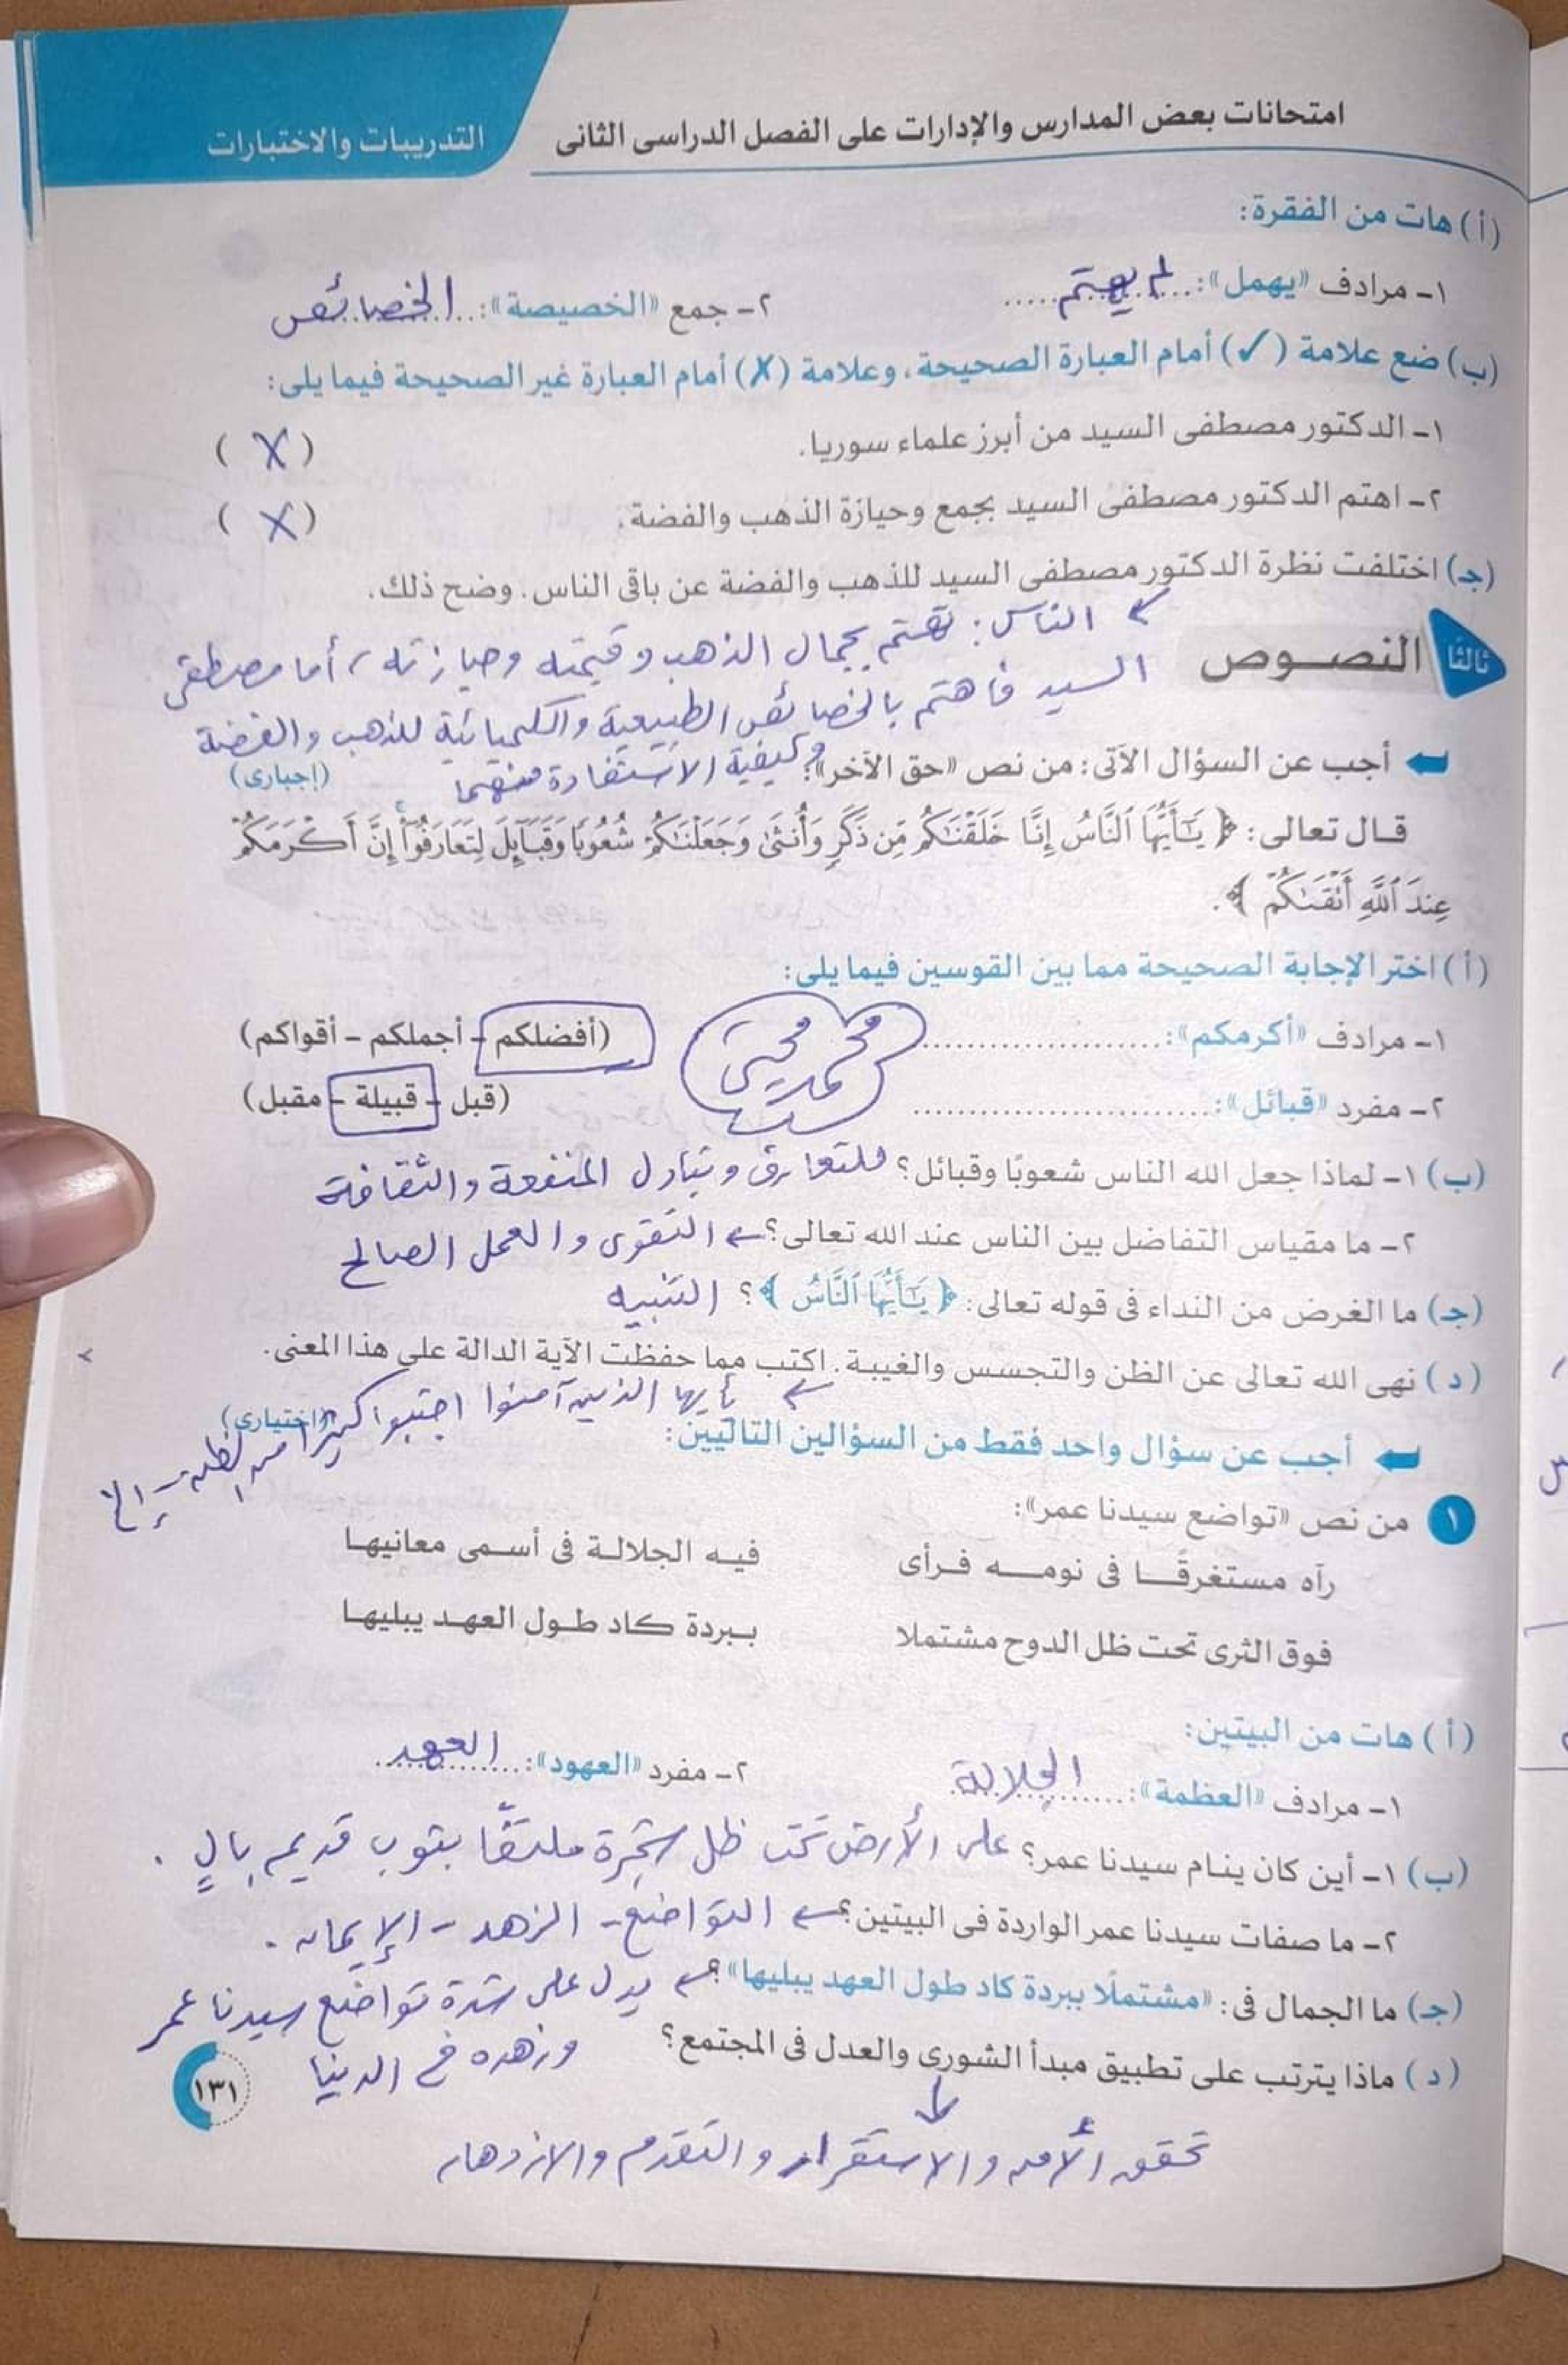 امتحانات بعض المدارس والإدارات على الفصل الدراسى الثانى
التدريبات والاختبارات
(أ) هات من الفقرة:
١- مرادف «يهمل»: لم يهتم ٢- جمع «الخصيصة»: الخصائص
(ب) ضع علامة (✓) أمام العبارة الصحيحة، وعلامة (✗) أمام العبارة غير الصحيحة فيما يلى:
١- الدكتور مصطفى السيد من أبرز علماء سوريا. (X)
٢- اهتم الدكتور مصطفى السيد بجمع وحيازة الذهب والفضة. (X)
(جـ) اختلفت نظرة الدكتور مصطفى السيد للذهب والفضة عن باقى الناس. وضح ذلك.
الناس: تهتم بجمال الذهب وقيمته وحيازته، أما مصطفى
ثالثًا النصوص
السيد فاهتم بالخصائص الطبيعية والكيميائية للذهب والفضة
وكيفية الاستفادة منهما
أجب عن السؤال الآتى: من نص «حق الآخر»: (إجبارى)
قال تعالى: ﴿ يَٰٓأَيُّهَا ٱلنَّاسُ إِنَّا خَلَقۡنَٰكُم مِّن ذَكَرٖ وَأُنثَىٰ وَجَعَلۡنَٰكُمۡ شُعُوبٗا وَقَبَآئِلَ لِتَعَارَفُوٓاْۚ إِنَّ أَكۡرَمَكُمۡ
عِندَ ٱللَّهِ أَتۡقَىٰكُمۡ ﴾.
(أ) اختر الإجابة الصحيحة مما بين القوسين فيما يلى:
١- مرادف «أكرمكم»: (أفضلكم - أجملكم - أقواكم)
محمد يحيى
٢- مفرد «قبائل»: (قبل - قبيلة - مقبل)
(ب) ١- لماذا جعل الله الناس شعوبًا وقبائل؟ للتعارف وتبادل المنفعة والثقافة
٢- ما مقياس التفاضل بين الناس عند الله تعالى؟ التقوى والعمل الصالح
(جـ) ما الغرض من النداء فى قوله تعالى: ﴿ يَٰٓأَيُّهَا ٱلنَّاسُ ﴾؟ التنبيه
(د) نهى الله تعالى عن الظن والتجسس والغيبة. اكتب مما حفظت الآية الدالة على هذا المعنى.
يأيها الذين آمنوا اجتنبوا كثيرًا من الظن - إلخ
أجب عن سؤال واحد فقط من السؤالين التاليين: (اختيارى)
١ من نص «تواضع سيدنا عمر»:
رآه مستغرقًا فى نومه فرأى فيه الجلالة فى أسمى معانيها
فوق الثرى تحت ظل الدوح مشتملا ببردة كاد طول العهد يبليها
(أ) هات من البيتين:
١- مرادف «العظمة»: الجلالة ٢- مفرد «العهود»: العهد
(ب) ١- أين كان ينام سيدنا عمر؟ على الأرض تحت ظل شجرة ملتفًّا بثوب قديم بالٍ.
٢- ما صفات سيدنا عمر الواردة فى البيتين؟ التواضع - الزهد - الإيمان.
(جـ) ما الجمال فى: «مشتملًا ببردة كاد طول العهد يبليها»؟ يدل على شدة تواضع سيدنا عمر
وزهده فى الدنيا
(د) ماذا يترتب على تطبيق مبدأ الشورى والعدل فى المجتمع؟
تحقق الأمن والاستقرار والتقدم والازدهار
١٣١